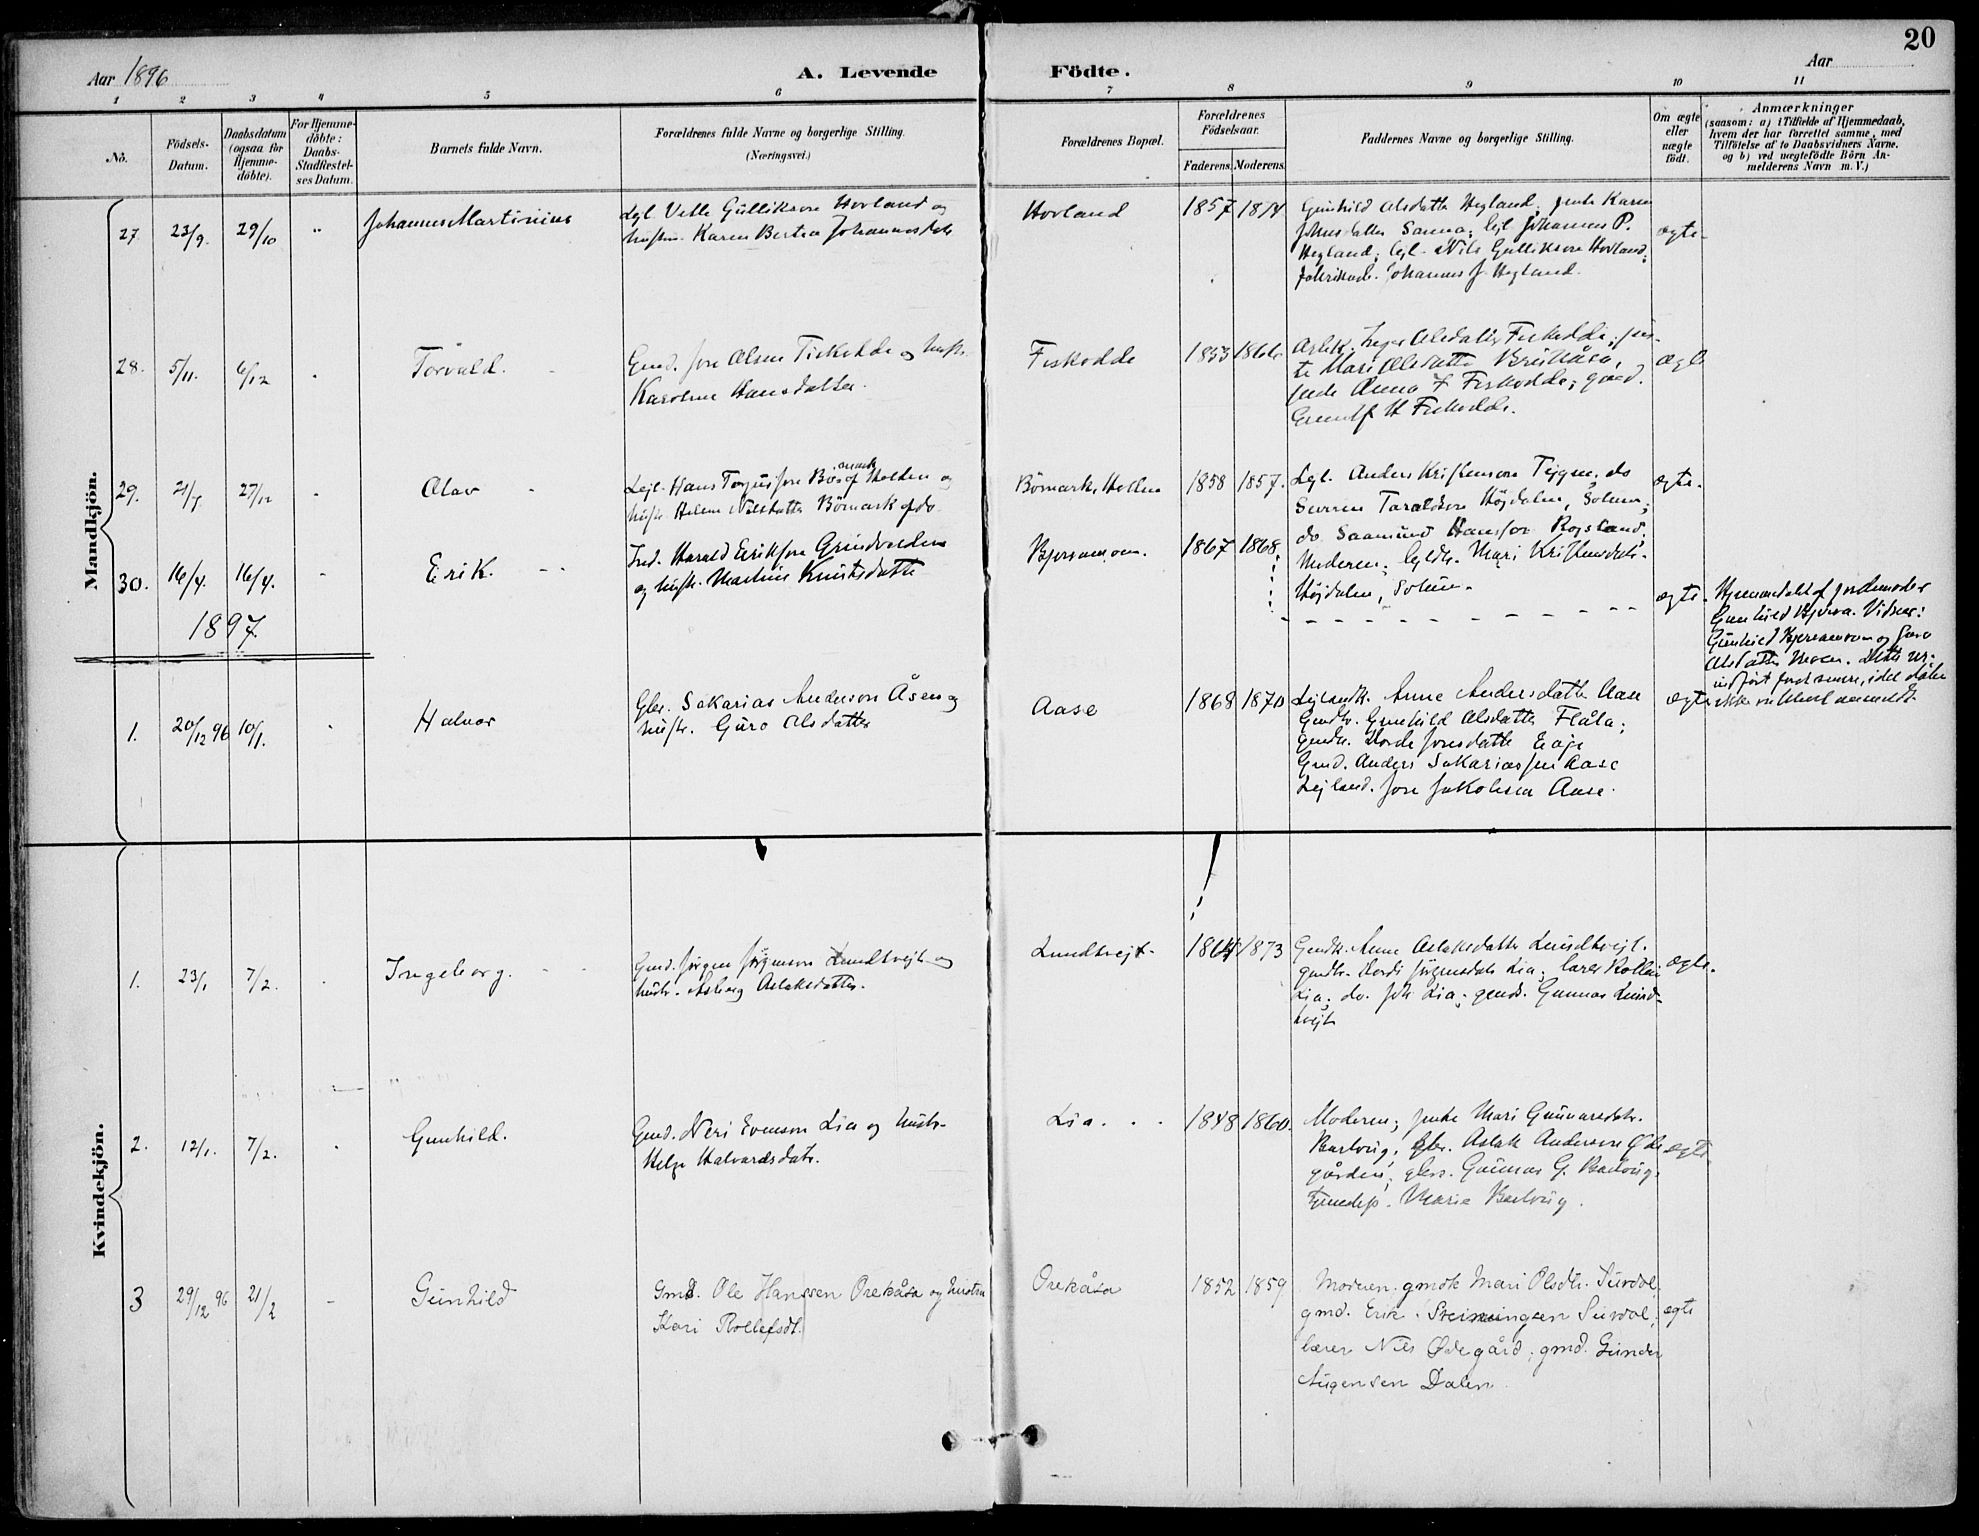 20
Aar 1896
A. Levende
Födte.
Aar
1 2 3 4 5 6 7 8 9 10 11
No.
Födsels-
Datum.
Daabsdatum
(ogsaa for
Hjemme-
döbte).
For Hjemme-
döbte:
Daabs-
Stadfæstel-
ses Datum.
Barnets fulde Navn.
Forældrenes fulde Navne og borgerlige Stilling.
(Næringsvei.)
Forældrenes Bopæl.
Forældrenes
Födselsaar.
Faderens.
Moderens.
Faddernes Navne og borgerlige Stilling.
Om ægte
eller
uægte
födt.
Anmærkninger
(saasom: a) i Tilfælde af Hjemmedaab,
hvem der har forrettet samme, med
Tilföielse af to Daabsvidners Navne.
og b) ved uægtefödte Börn An-
melderens Navn m. V.)
Mandkjön.
27 23/9. 29/10 " Johannes Martinius
Lejl. Vetle Gulliksen Hovland og
hustru Karen Bertea Johannesdatr
Hovland
1857 1874
Gunhild Olsdatter Hegland; jente Karen
Johnsdatter Sanna; lejl Johannes P.
Hegland; lejl. Nils Gulliksen Hovland;
Johannes J. Hegland.
ægte
28. 5/11. 6/12 Torvald.
Gmd. Jon Olsen Fiskodde og hustr.
Karoline Hansdatter.
Fiskodde
1853 1866
Inger Olsdatter Fiskodde; jen-
te Mari Olsdatter
Anna Fiskodde; gmd.
H Fiskodde.
ægte
29. 27/12 Olav
Lejl. Hans Torgussen Börmark af Holden og
hustr. Helene Nilsdatter Börmark af do.
Börmark, Hollen
1858 1857.
Lejl. Anders Kristensen Tejgen; do
Sörren Taraldsen Højdalen, Solum;
do Saamund Hansson Rogsland;
Moderen; lejlk. Mari Kristensdatr.
Højdalen, Solum.
ægte.
30. 16/4. 16/4. Erik.
Ind. Harald Eriksen Grindvolden
og hustr. Martine Knutsdatter
1867 1868
ægte.
Hjemmedøbt af jordemoder
Gunhild Bjerva. Vidner:
Gunhild og Guro
Olsdatter Moen. Dette er
indført først senere, idet dåben
ikke var blevet anmeldt.
1897
1. 20/12 96 10/1. Halvor
Gbr. Sakarias Anderson Åsen og
hustr. Guro Olsdatter
Aase
1868 1870
Lejlandk. Anne Andersdatter Aase
Gmdk. Gunhild Olsdatter Flåta;
gmdk. Torde Jonsdatter Eeje
Gmd. Anders Sakariassen Aase
Lejland. Jon Jakobsen Aase.
ægte
Kvindekjön.
1. 23/1 7/2. Ingeborg.
Gmd. Jørgen Jørgenson Lundtvejt og
hustr. Asborg Aslaksdatter.
Lundtvejt
1864 1873
Gmdk. Anne Aslaksdatter Lundtvejt.
gmdk. Tordi Jörgensdatr Lia; lærer Rollei
Lia; do. Joh Lia; gmds. Gunnar Lund-
tvejt
ægte.
2. 12/1. 7/2. Gunhild.
Gmd. Neri Evenson Lia og hustr.
Helge Halvardsdatr.
Lia.
1848 1860.
Moderen; jente Mari Gunnarsdatr.
Barlaug; gbr. Aslak Andersen Øde
gården; gbrs. Gunnar G. Barlaug.
Tjenestep. Marie Barlaug.
ægte
3 29/12 96 21/2 Gunhild
Gmd. Ole Hanssen Orekåsa og hustru
Kari Rollefsdt.
Orekåsa
1852 1859
Moderen. gmdk Mari Olsdtr. Survdal,
gmd. Erik Survdal;
lærer Nils Ødegård; gmd. Gunder
Augensen Dalen.
ægte